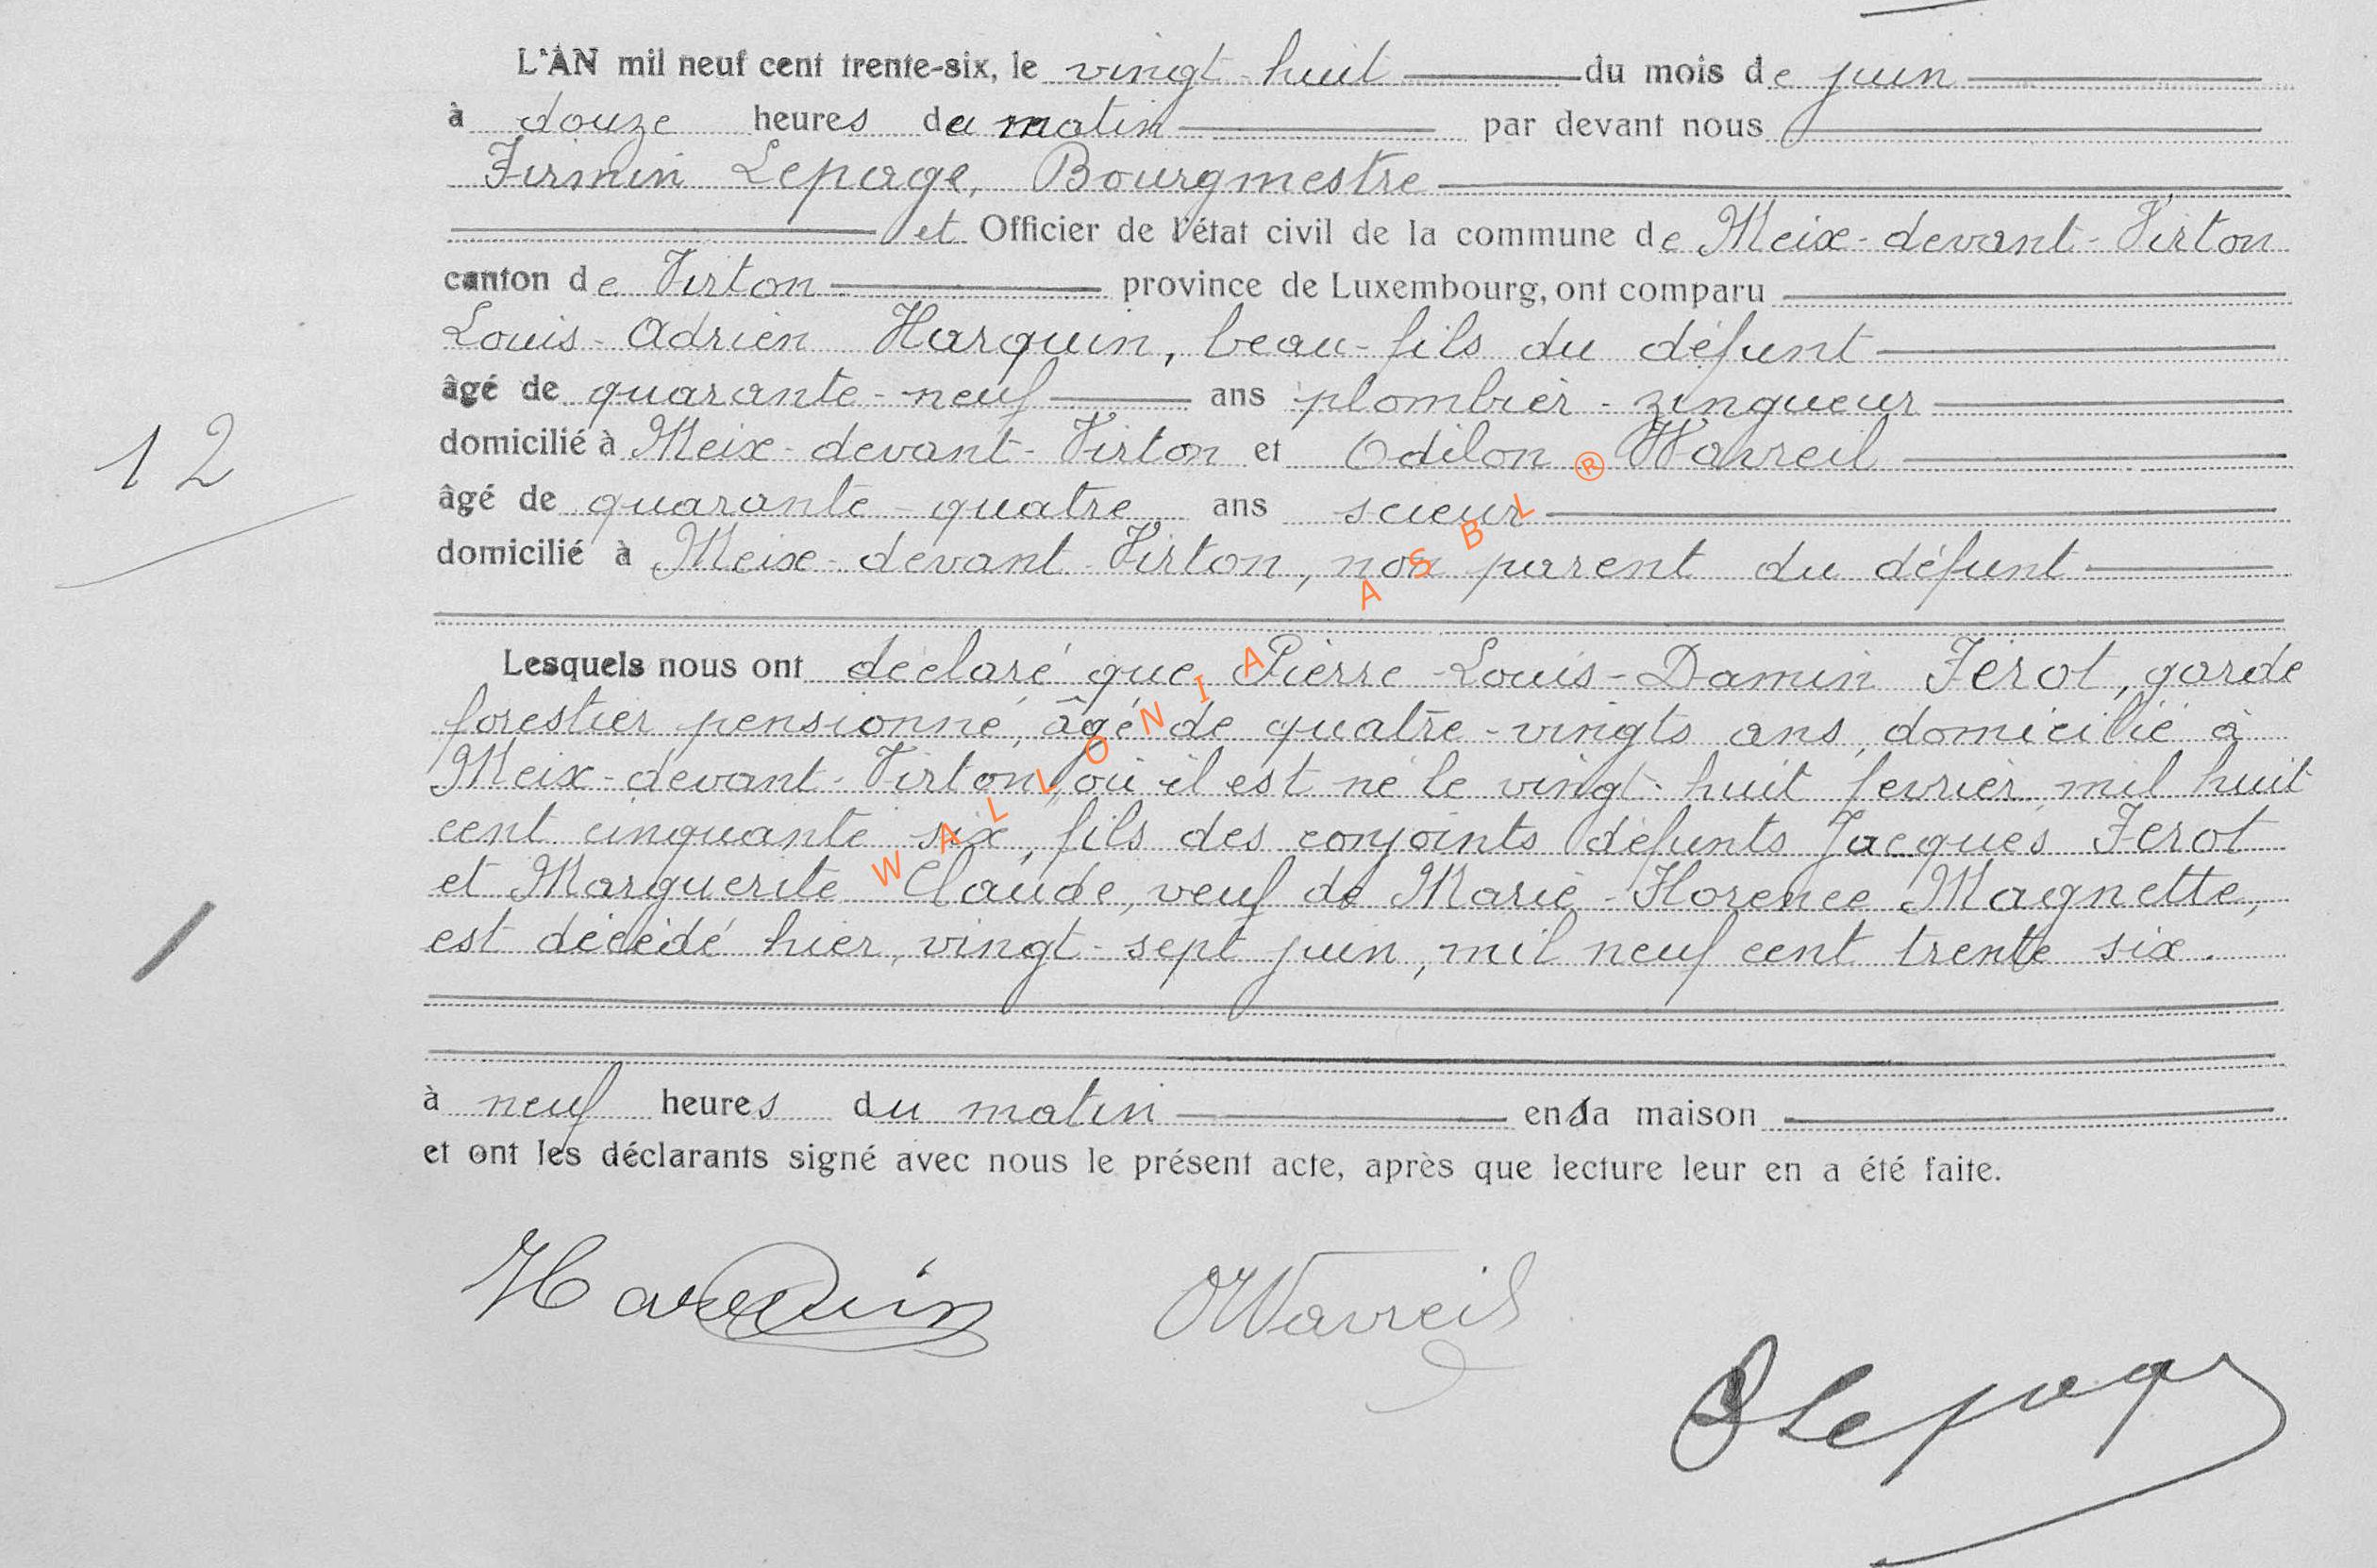 L'AN mil neuf cent trente-six, le vingt-huit du mois de juin
à douze heures du matin par devant nous
Firmin Lepage, Bourgmestre
et Officier de l'état civil de la commune de Meix-devant-Virton
canton de Virton province de Luxembourg, ont comparu
Louis-Adrien Harquin, beau-fils du défunt
âgé de quarante-neuf ans plombier-zingueur
domicilié à Meix-devant-Virton et Odilon Wavreil
12
âgé de quarante-quatre ans scieur
domicilié à Meix-devant-Virton, non parent du défunt
Lesquels nous ont déclaré que Pierre-Louis-Damin Ferot, garde
forestier pensionné, âgé de quatre-vingts ans, domicilié à
Meix-devant-Virton, où il est né le vingt-huit fevrier mil huit
cent cinquante six, fils des conjoints défunts Jacques Ferot
et Marguerite Claude, veuf de Marie-Florence Magnette,
est décédé hier, vingt-sept juin, mil neuf cent trente six.
à neuf heures du matin en sa maison
et ont les déclarants signé avec nous le présent acte, après que lecture leur en a été faite.
Harquin OWavreil
Lepage
WALLONIA ASBL ®